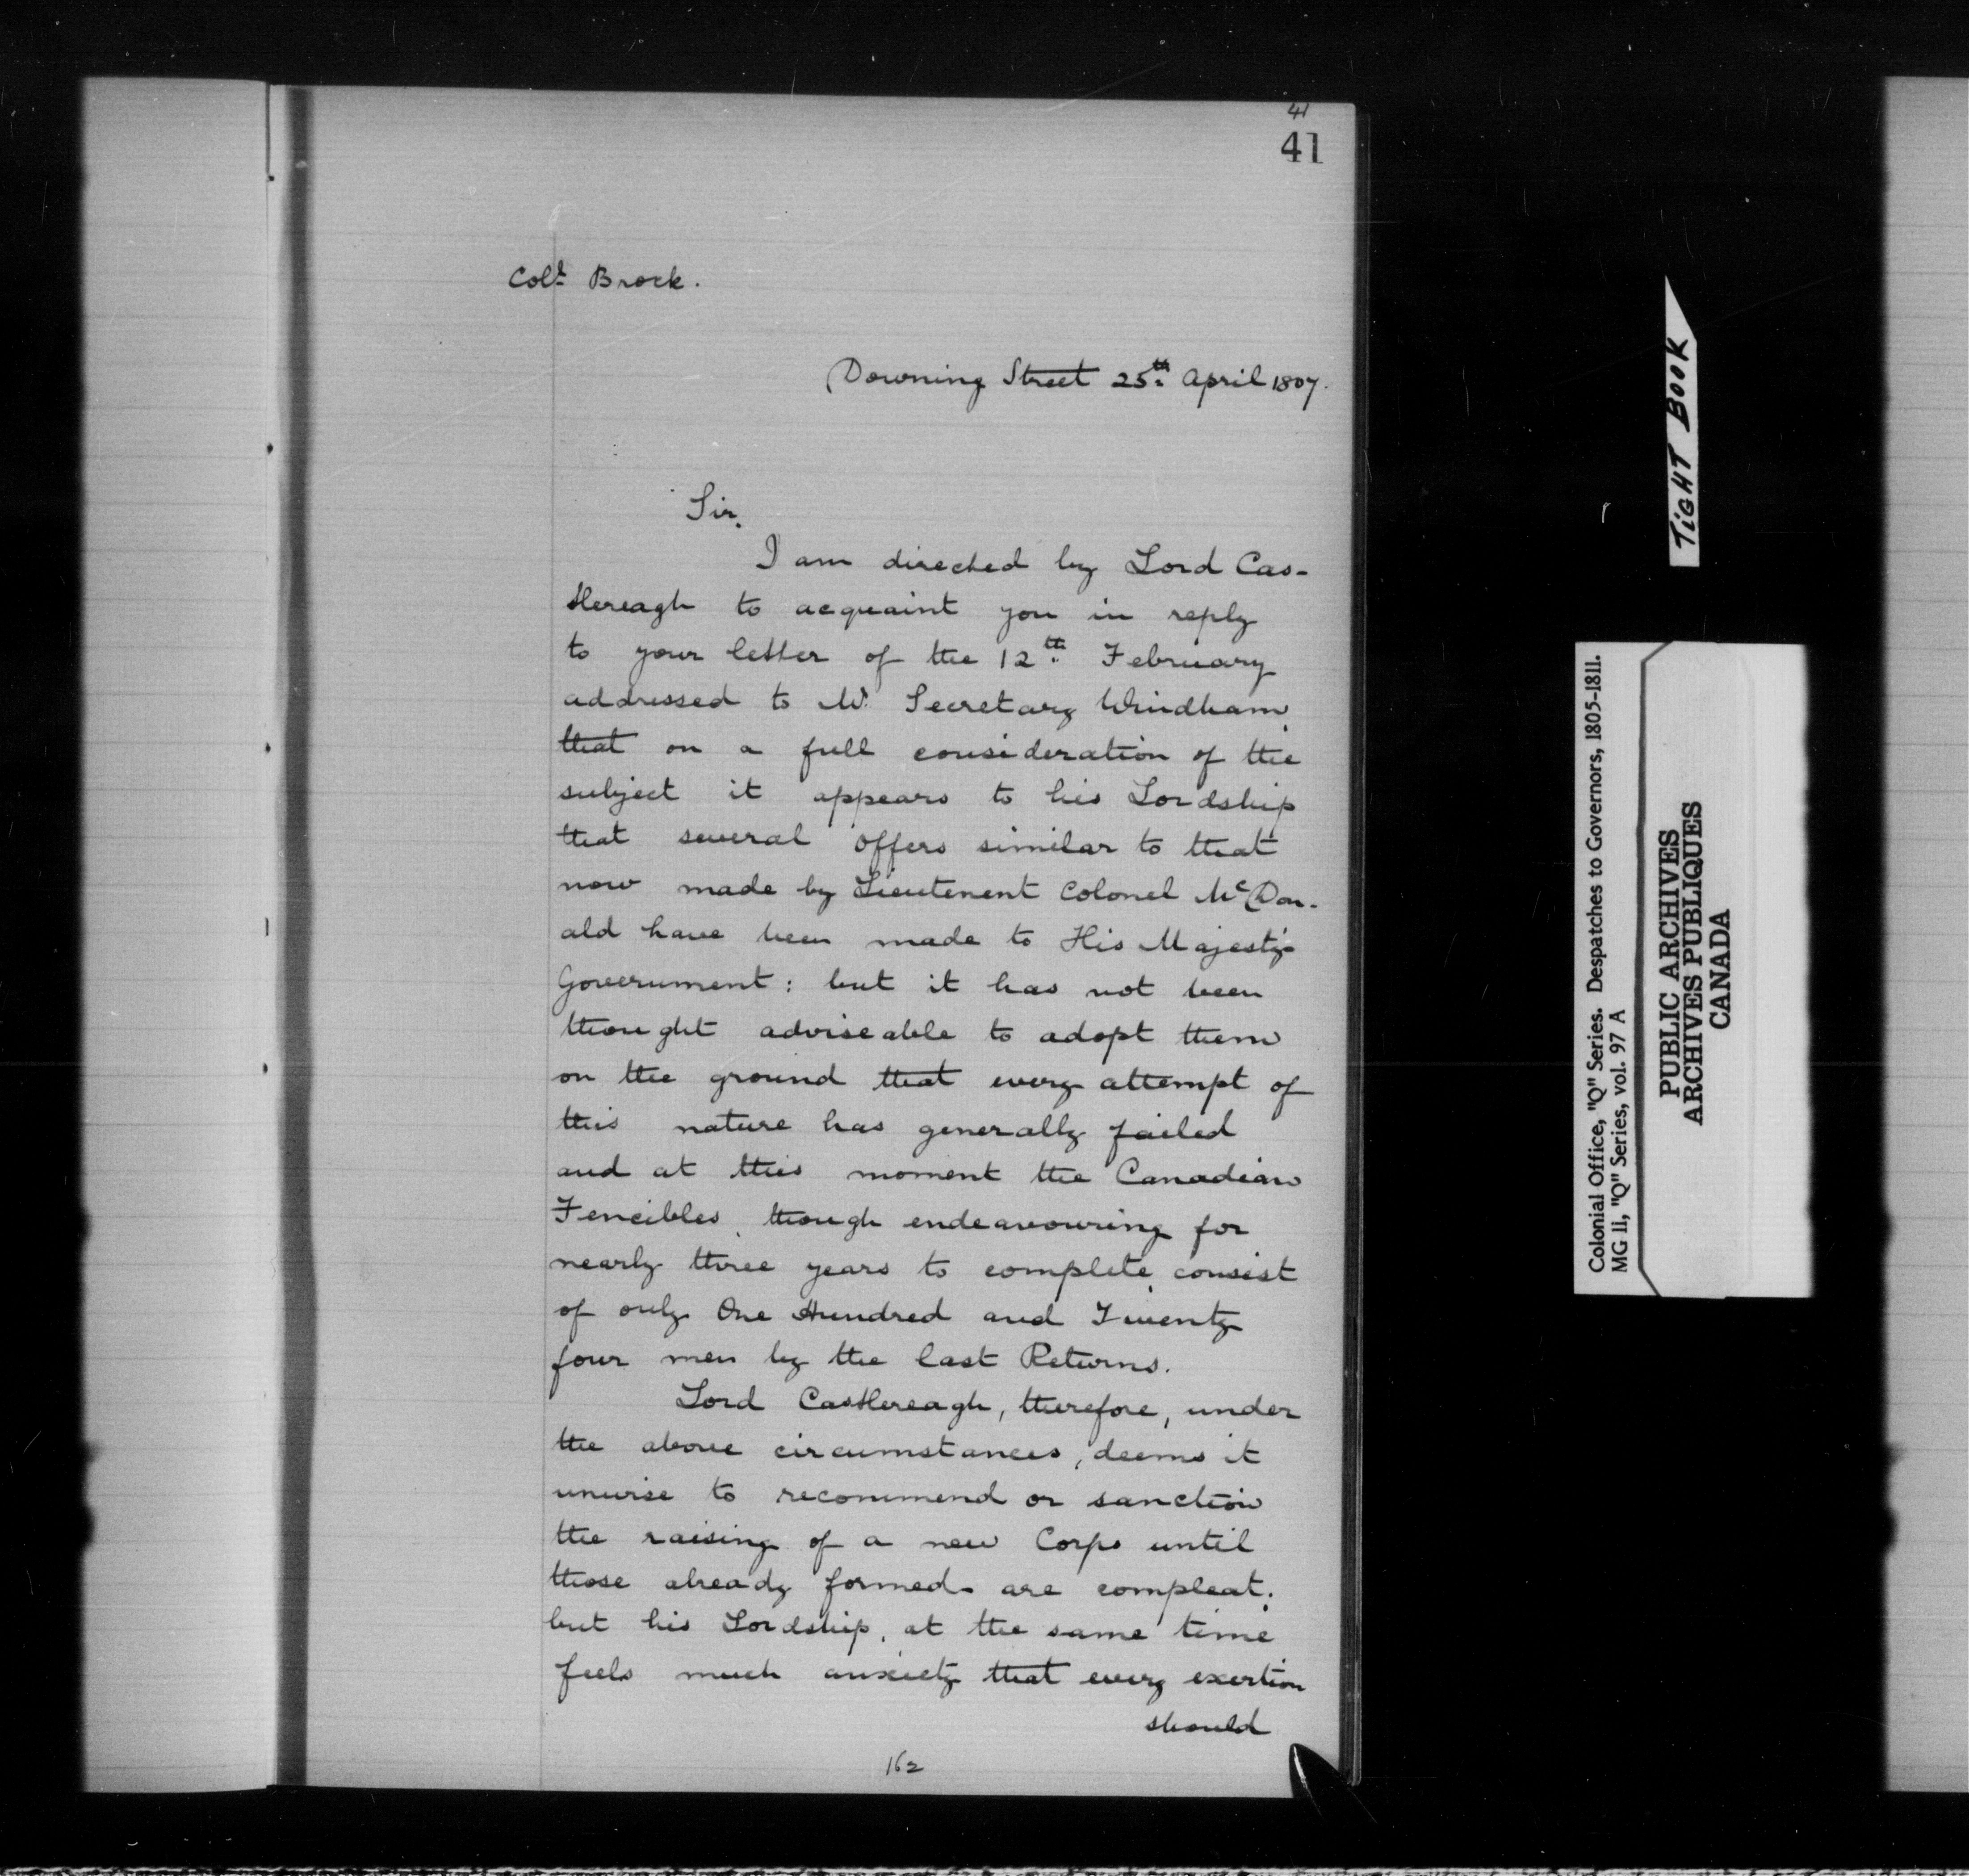 41
41
Colˡ Brock.
Downing Street 25th April 1807.
Sir,
I am directed by Lord Cas-
tlereagh to acquaint you in reply
to your letter of the 12th February
addressed to Mr. Secretary Windham,
that on a full consideration of the
subject it appears to his Lordship
that several offers similar to that
now made by Lieutenent Colonel McDon-
ald have been made to His Majesty's
Government: but it has not been
thought adviseable to adopt them
on the ground that every attempt of
this nature has generally failed
and at this moment the Canadian
Fencibles, though endeavouring for
nearly three years to complete, consist
of only One Hundred and Twenty
four men by the last Returns.
Lord Castlereagh, therefore, under
the above circumstances, deems it
unwise to recommend or sanction
the raising of a new Corps until
those already formed are compleat;
but his Lordship, at the same time
feels much anxiety that every exertion
should
162
TIGHT BOOK
Colonial Office, "Q" Series. Despatches to Governors, 1805-1811.
MG 11, "Q" Series, vol. 97 A
PUBLIC ARCHIVES
ARCHIVES PUBLIQUES
CANADA